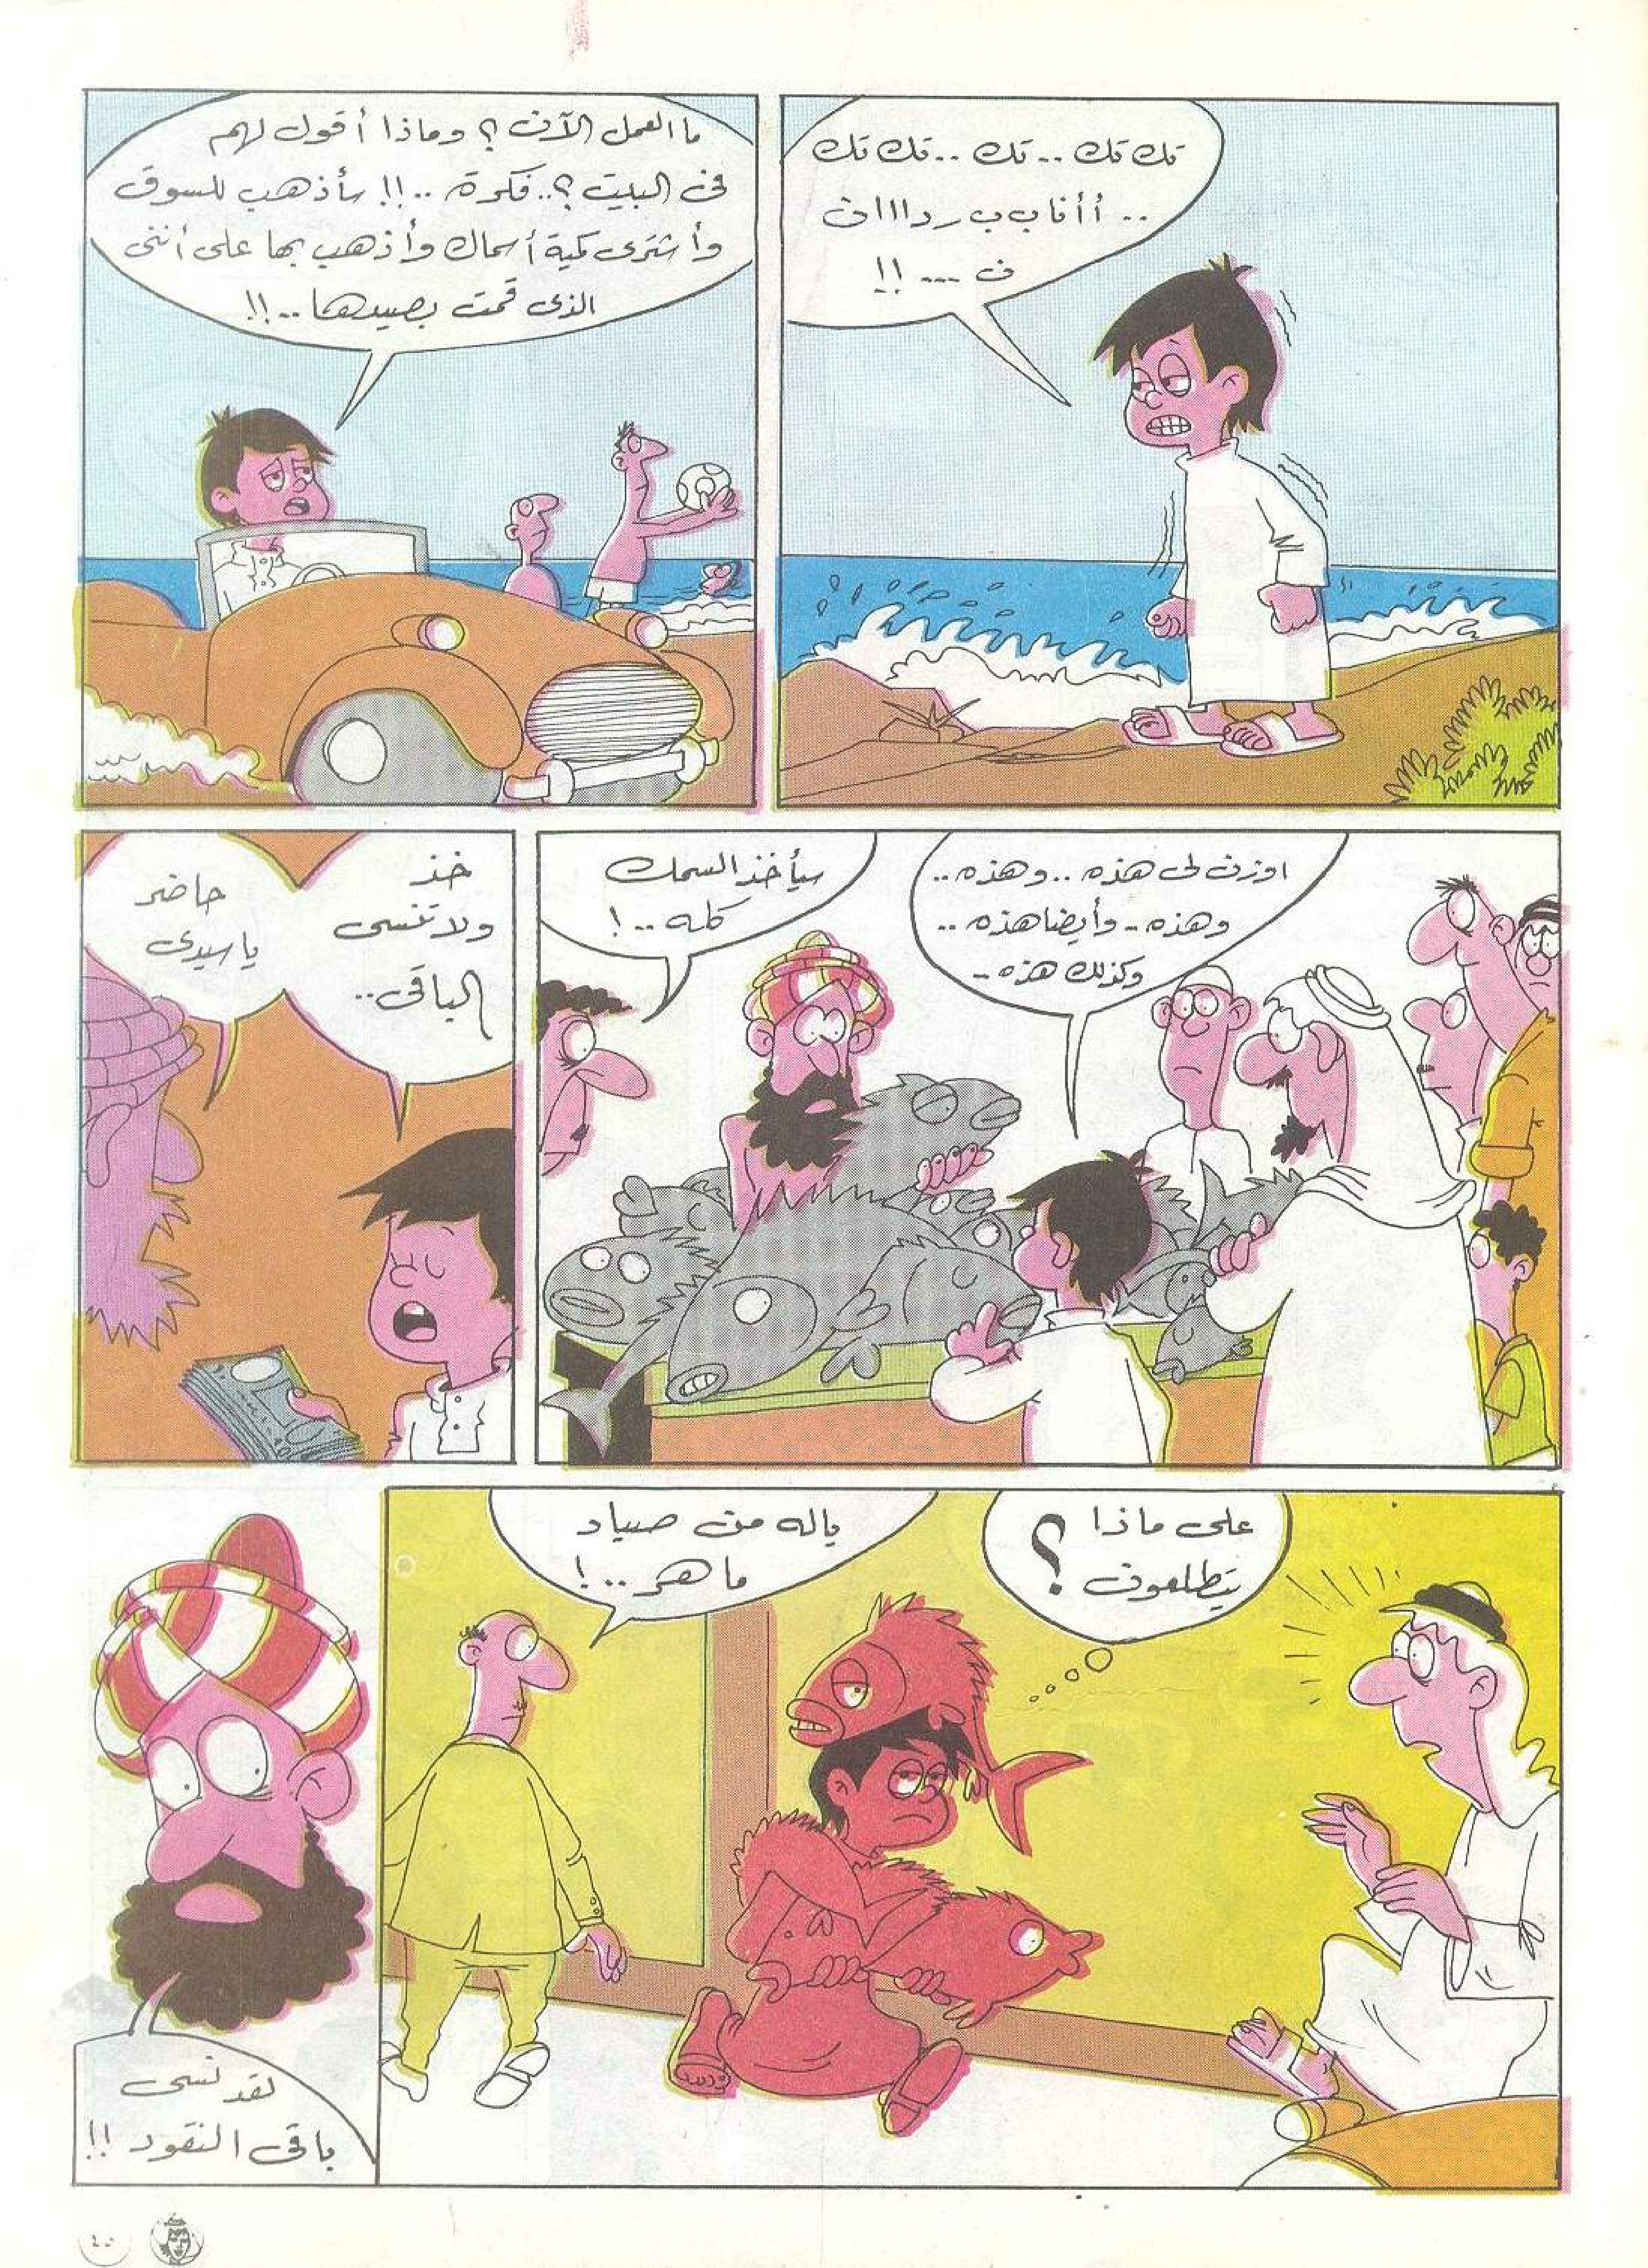 تك تك .. تك .. تك تك
.. أأنا ب ب رداااان
ن ... !!
ما العمل الآن ؟ وماذا أقول لهم
فى البيت ؟.. فكرة ..!! سأذهب للسوق
وأشترى كمية أسماك وأذهب بها على أننى
الذى قمت بصيدها ..!!
اوزن لى هذه .. وهذه ..
وهذه .. وأيضا هذه ..
وكذلك هذه ..
سيأخذ السمك
كله ..!
خذ
ولا تنسى
الباقى ..
حاضر
يا سيدى
على ماذا
يتطلعون ؟
ياله من صياد
ماهر ..!
لقد نسى
باقى النقود !!